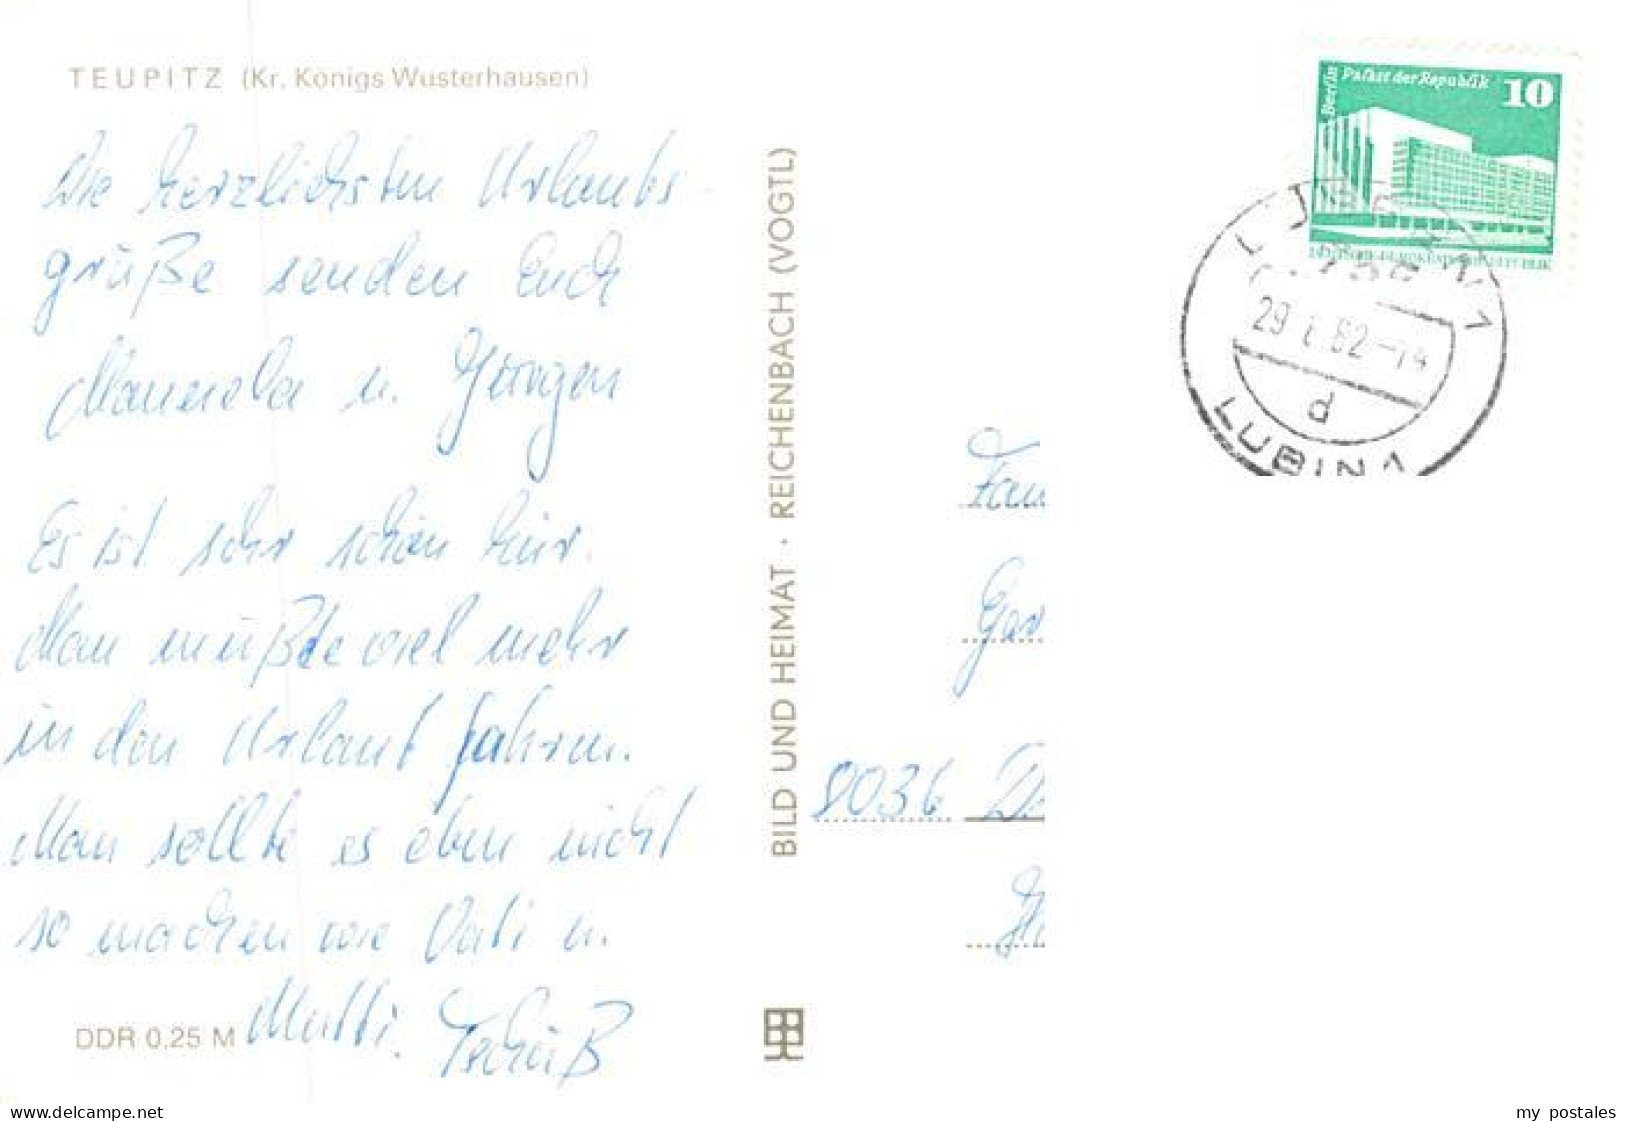 TEUPITZ (Kr. Königs Wusterhausen)
Die herzlichsten Urlaubs-
grüße senden Euch
Manuela u. Jürgen
Es ist sehr schön hier.
Man müßte viel mehr
in den Urlaub fahren.
Man sollte es eben nicht
so machen wie Vati u.
Mutti. Tschüß
DDR 0,25 M
BILD UND HEIMAT · REICHENBACH (VOGTL)
Berlin
Palast der Republik
10
DEUTSCHE DEMOKRATISCHE REPUBLIK
LÜBBEN 1
29. 82-14
d
LUBIN 1
Fam
Ger
8036 D
www.delcampe.net
my postales